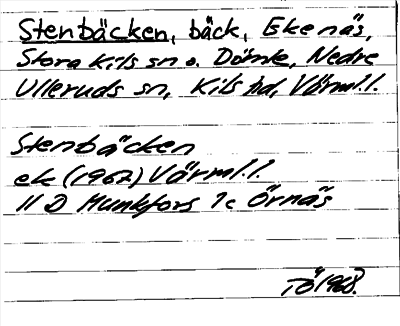 Stenbäcken, bäck, Ekenäs,
Stora Kils sn o. Dömle, Nedre
Ulleruds sn, Kils hd, Värml.l.
Stenbäcken
ek (1962) Värml.l.
11 D Munkfors 1c Örnäs
TÖ 1968.